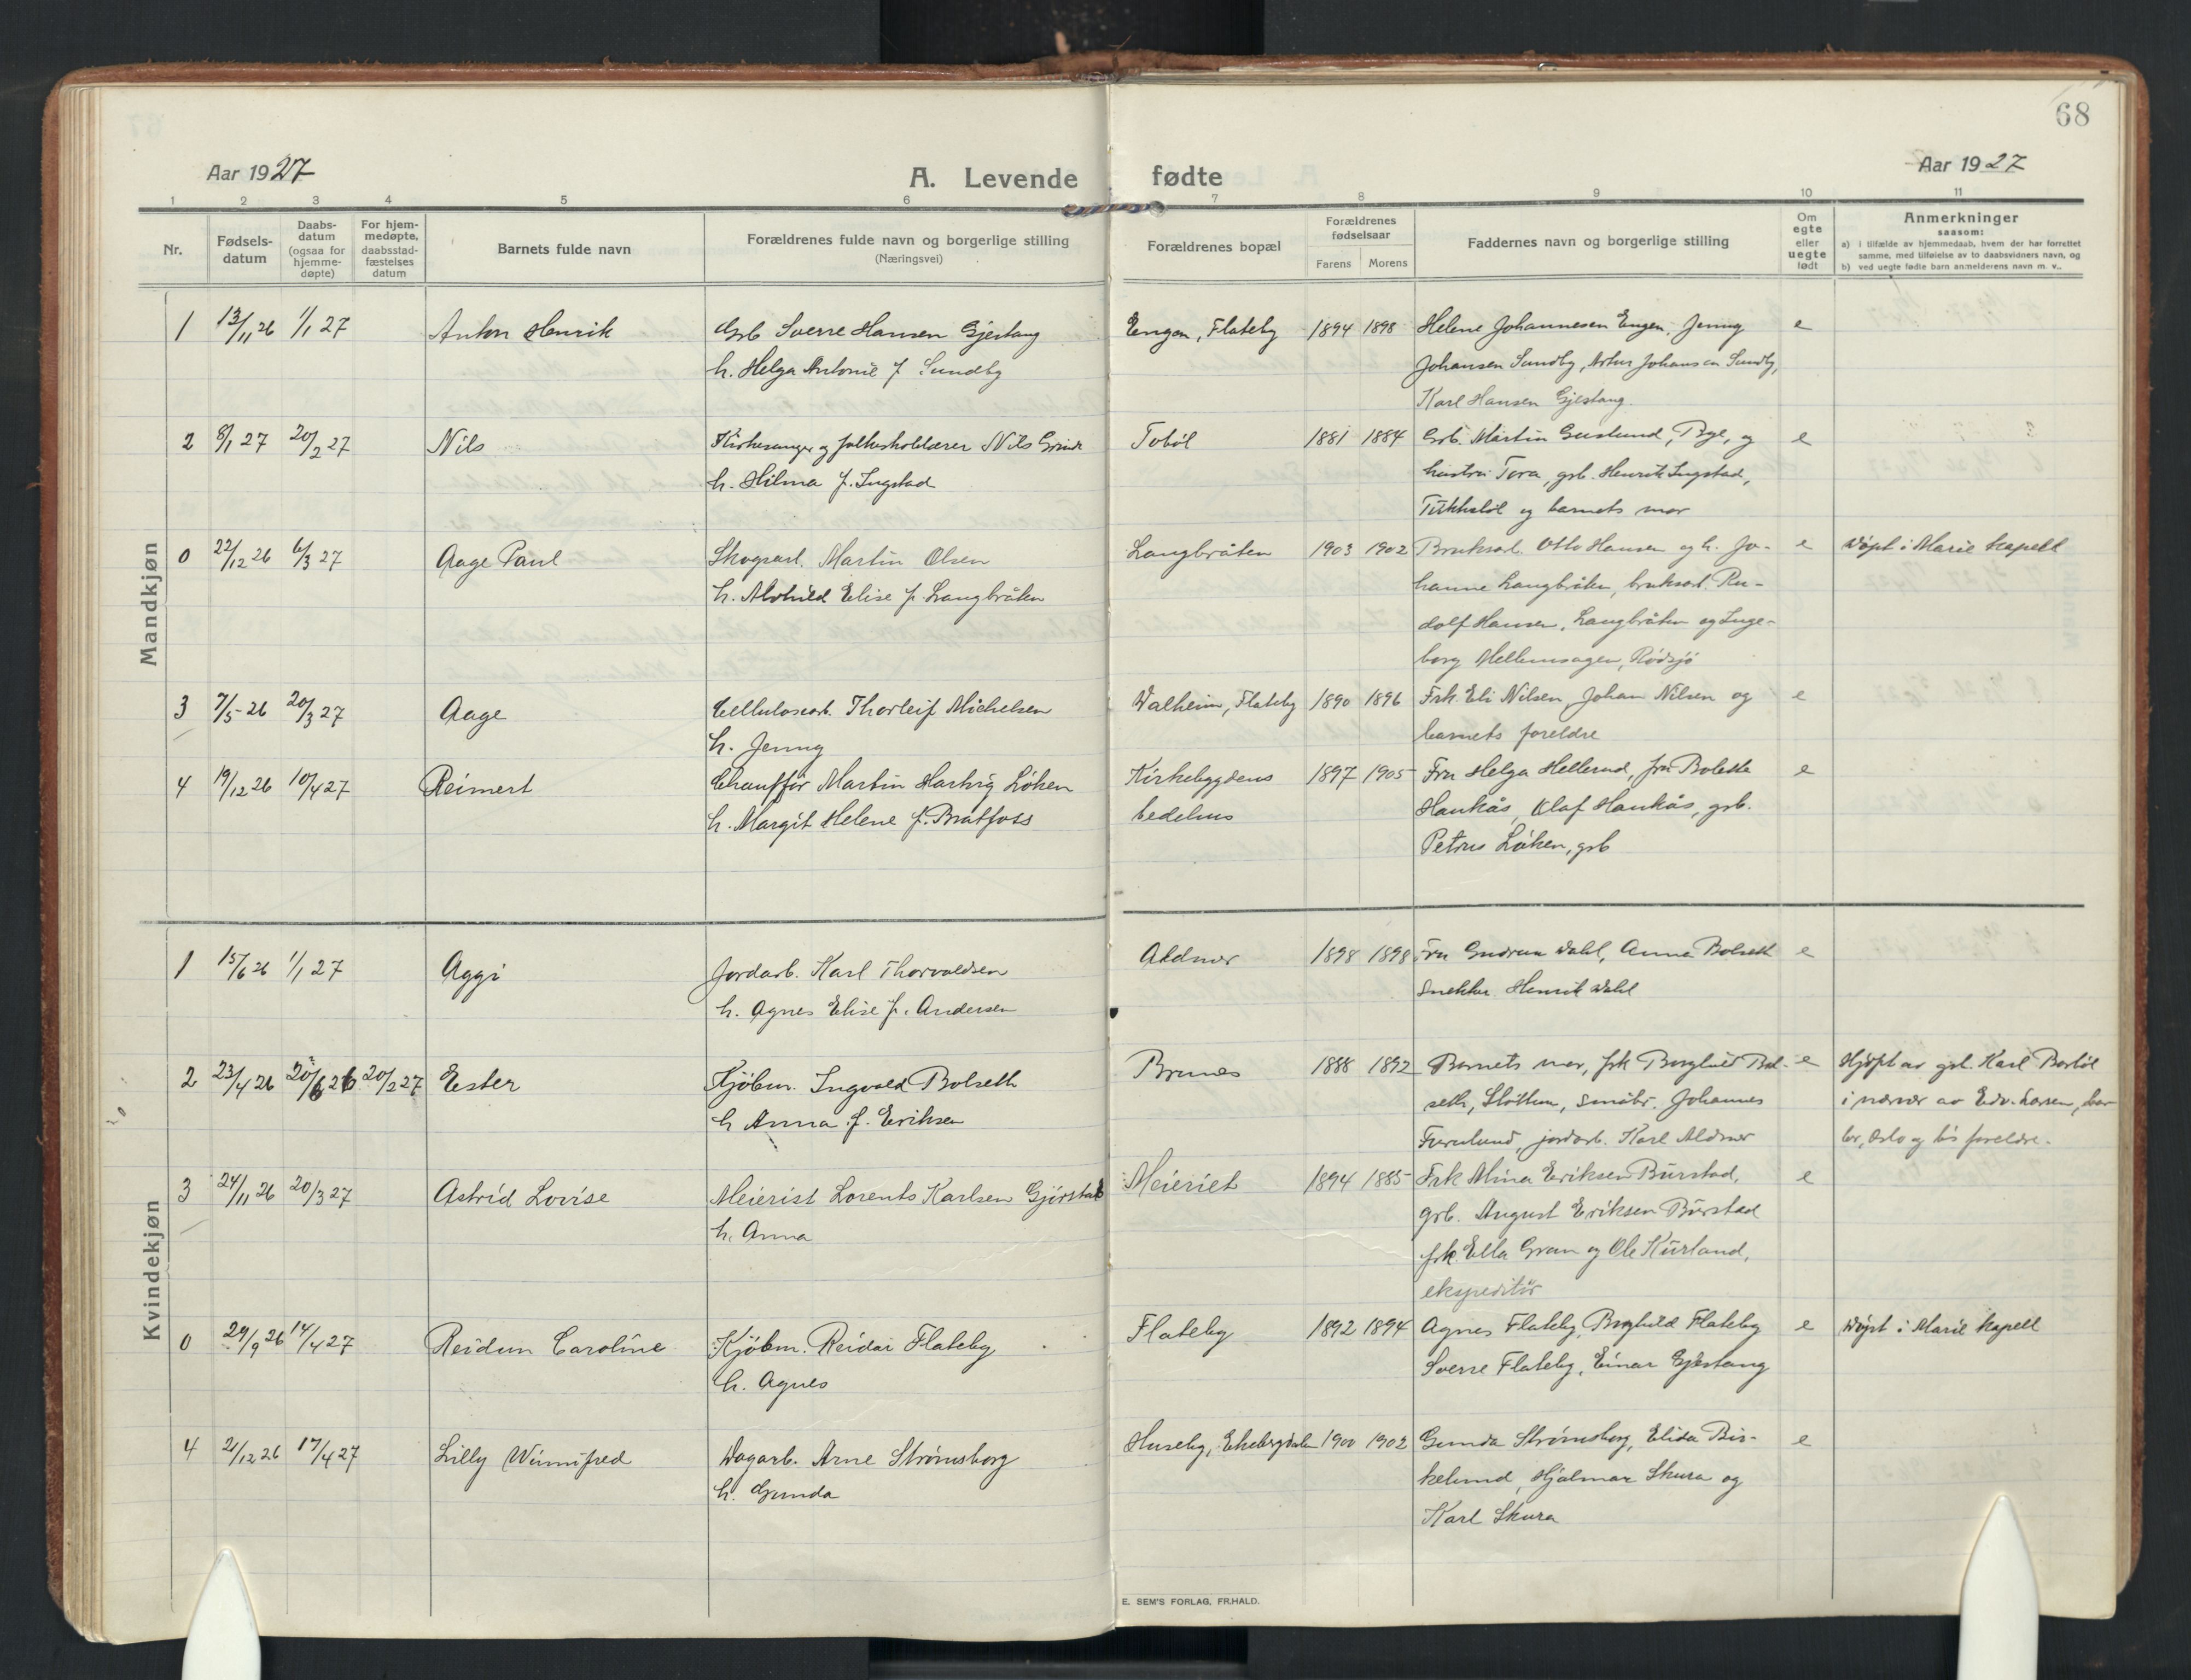 68
Aar 1927
A. Levende fødte
Aar 1927
1 2 3 4 5 6 7 8 9 10 11
Nr.
Fødsels-
datum
Daabs-
datum
(ogsaa for
hjemme-
døpte)
For hjem-
medøpte,
daabsstad-
fæstelses
datum
Barnets fulde navn
Forældrenes fulde navn og borgerlige stilling
(Næringsvei)
Forældrenes bopæl
Forældrenes
fødselsaar
Farens Morens
Faddernes navn og borgerlige stilling
Om
egte
eller
uegte
født
Anmerkninger
saasom:
a) i tilfælde av hjemmedaab, hvem der har forrettet
samme, med tilføielse av to daabsvidners navn, og
b) ved uegte fødte barn anmelderens navn m. v..
Mandkjøn
1 13/11 26 1/1 27 Anton Henrik Grb Sverre Hansen Gjestang Engen, Flateby 1894 1898 Helene Johannesen Engen, Jenny e
h. Helga Antonie f. Sundby Johansen Sundby, Artur Johansen Sundby,
Karl Hansen Gjestang.
2 8/1 27 20/2 27 Nils Kirkesanger og folkeskolelærer Nils Grinde Tobøl 1881 1884 Grb. Martin Guslund, Bye, og e
h. Hilma f. Ingstad hustru Tora, grb. Henrik Ingstad,
og barnets mor
0 22/12 26 6/3 27 Aage Paul Skogsarb. Martin Olsen Langbråten 1903 1902 Bruksarb. Otto Hansen og h. Jo- e Døpt i Marie kapell
h. Alvhild Elise f. Langbråten hanne Langbråten, bruksarb. Ru-
dolf Hansen, Langbråten og Inge-
borg Mellemsagen, Rødsjø
3 7/5 26 20/3 27 Aage Cellulosearb. Thorleif Michelsen Valheim, Flateby 1890 1896 Frk. Eli Nilsen, Johan Nilsen og e
h. Jenny barnets foreldre
4 19/12 26 10/4 27 Reimert Chauffør Martin Hartvig Løken Kirkebygdens 1897 1905 Fru Helga Hellerud, fru Bolette e
h. Margit Helene f. Bratfoss bedehus Haukås, Olaf Haukås, grb.
Petrus Løken, grb
Kvindekjøn
1 15/6 26 1/1 27 Aggi Jordarb. Karl Thorvaldsen Aldmer 1898 1898 Fru Gudrun Dahl, Anna Bolseth e
h. Agnes Elise f. Andersen Snekker Henrik Dahl
2 23/4 26 20/6 26 20/2 27 Ester Kjøbm. Ingvald Bolseth Brunes 1888 1892 Barnets mor, frk Borghild Bol- e Hjdøpt av grb. Karl Bastøl
h Anna f. Eriksen seth, Slottum, småbr. Johannes i nærvær av Edv. Larsen,
Furulund, jordarb. Karl Aldmer Oslo og bs foreldre.
3 24/11 26 20/3 27 Astrid Lovise Meierist Lorents Karlsen Gjørstad Meieriet 1894 1885 Frk Mina Eriksen Burstad, e
h. Anna grb. August Eriksen Burstad
frk. Ella Gran og Ole Kurland,
ekspeditør
0 29/9 26 14/4 27 Reidun Caroline Kjøbm. Reidar Flateby Flateby 1892 1894 Agnes Flateby, Borghild Flateby e Døpt i Marie kapell
h. Agnes Sverre Flateby, Einar Gjestang
4 21/12 26 17/4 27 Lilly Winnifred Dagarb. Arne Strømsborg Huseby, Ekebergdalen 1900 1902 Gunda Strømsborg, Elida Bir- e
h. Gunda kelund, Hjalmar Skura og
Karl Skura
E. SEM'S FORLAG, FR.HALD.